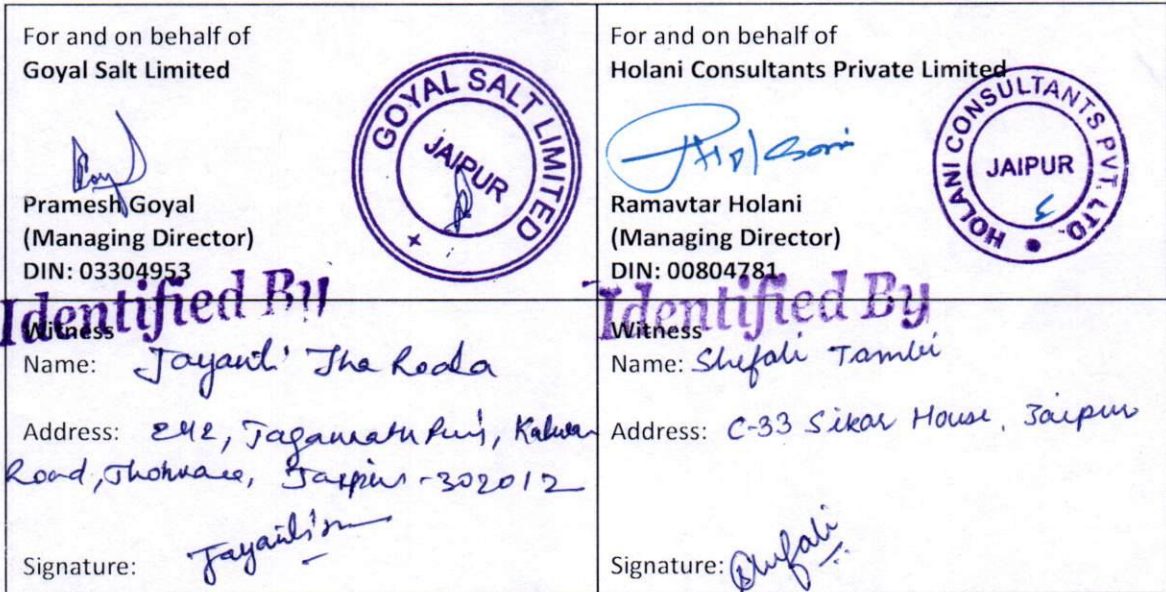 For and on behalf of
Goyal Salt Limited
GOYAL SALT LIMITED
JAIPUR
Pramesh Goyal
(Managing Director)
DIN: 03304953
Identified By
Witness
Name: Jayanti Jha Roda
Address: 242, Jagannath Puri, Kalwar
Road, Jhotwara, Jaipur - 302012
Signature: Jayanti
For and on behalf of
Holani Consultants Private Limited
HOLANI CONSULTANTS PVT. LTD.
JAIPUR
Ramavtar Holani
(Managing Director)
DIN: 00804781
Identified By
Witness
Name: Shefali Tambi
Address: C-33 Sikar House, Jaipur
Signature: Shefali